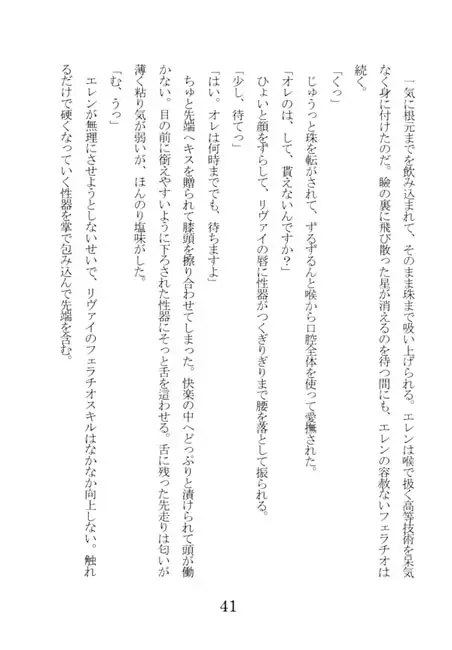 一気に根元までを飲み込まれて、そのまま珠まで吸い上げられる。エレンは喉で扱く高等技術を呆気
なく身に付けたのだ。瞼の裏に飛び散った星が消えるのを待つ間にも、エレンの容赦ないフェラチオは
続く。
「くっ」
じゅうっと珠を転がされて、ずるずるんと喉から口腔全体を使って愛撫された。
「オレのは、して、貰えないんですか？」
ひょいと顔をずらして、リヴァイの唇に性器がつくぎりぎりまで腰を落として振られる。
「少し、待てっ」
「はい。オレは何時まででも、待ちますよ」
ちゅと先端へキスを贈られて膝頭を擦り合わせてしまった。快楽の中へどっぷりと漬けられて頭が働
かない。目の前に銜えやすいように下ろされた性器にそっと舌を這わせる。舌に残った先走りは匂いが
薄く粘り気が弱いが、ほんのり塩味がした。
「む、うっ」
エレンが無理にさせようとしないせいで、リヴァイのフェラチオスキルはなかなか向上しない。触れ
るだけで硬くなっていく性器を掌で包み込んで先端を含む。
41